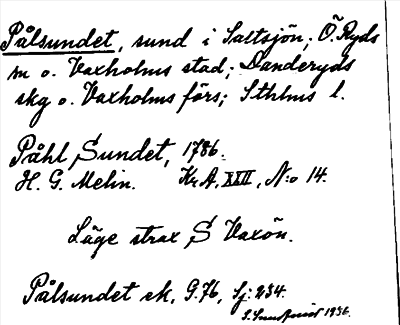 Pålsundet, sund i Saltsjön; Ö. Ryds
m o. Vaxholms stad; Danderyds
skg o. Vaxholms förs; Sthlms l.
Påhl Sundet, 1786.
H. G. Melin. Kr. A. XXII, N:o 14.
Läge strax S Vaxön.
Pålsundet ek. G. 76, Sj: 234.
1936.